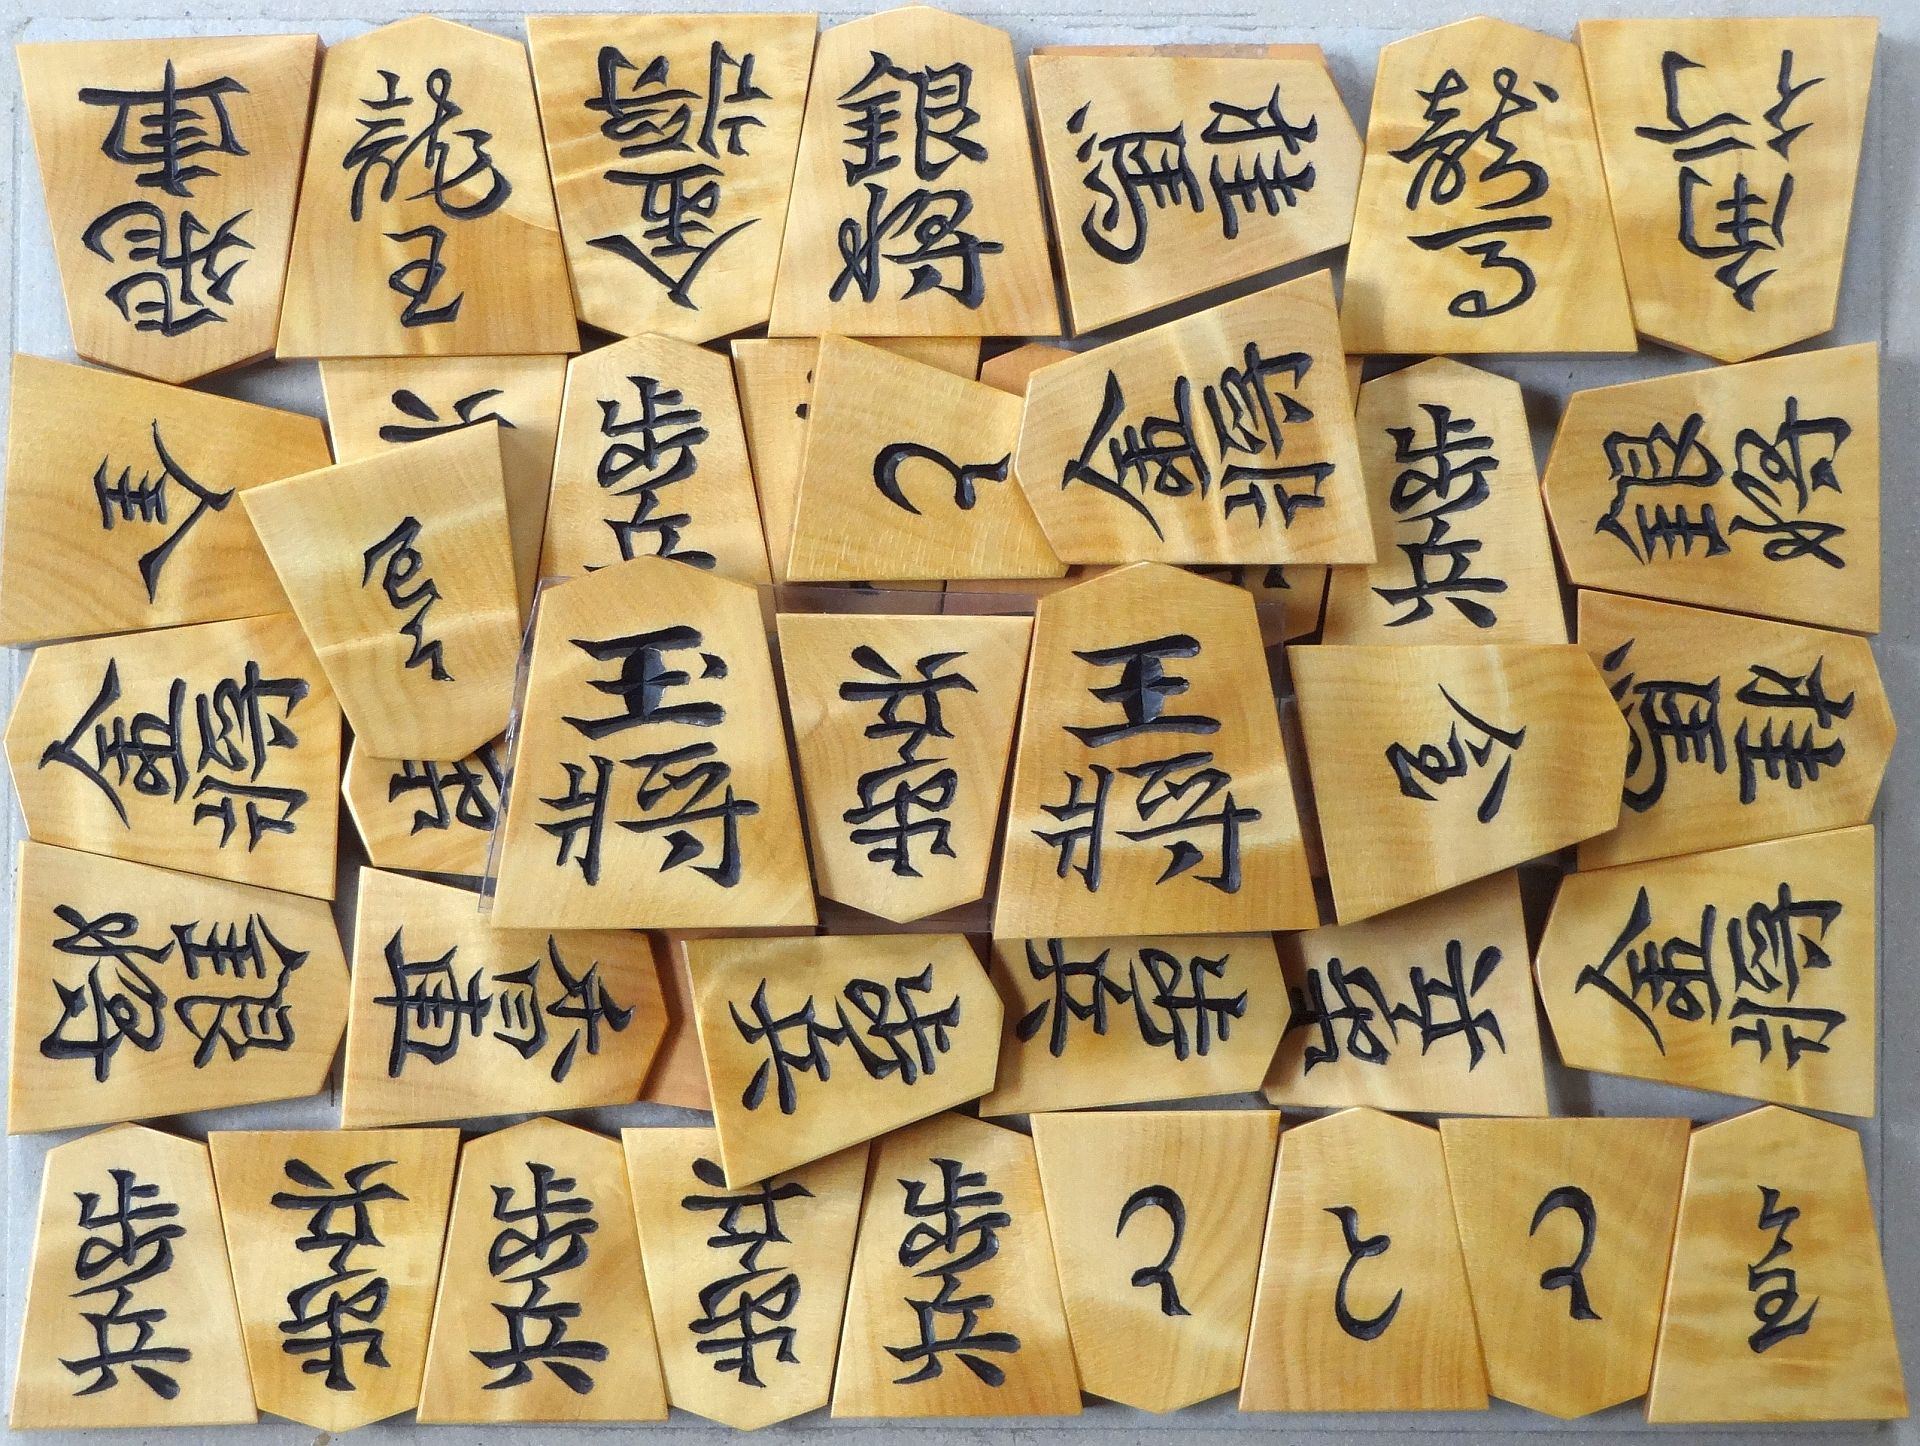 飛車
龍王
金将
銀将
桂馬
龍馬
角行
全
歩兵
と
金将
歩兵
銀将
金将
玉将
歩兵
王将
桂馬
銀将
香車
歩兵
歩兵
歩兵
金将
歩兵
歩兵
歩兵
歩兵
歩兵
と
と
と